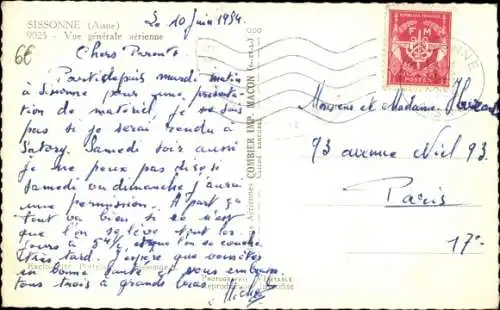 SISSONNE (Aisne)
9025 - Vue générale aérienne
66
Le 10 Juin 1954.
Chers Parents
Parti depuis mardi matin
à Sissonne pour une présenta-
tion de matériel, je ne sais
pas si je serai rendu à
Satory. Samedi soir aussi
je ne peux pas dire si
Samedi ou dimanche j'aurai
une permission. A part ça
tout va bien si ce n'est
que l'on se lève tous les
jours à 5h½ et que l'on se couche
très tard. J'espère que vous êtes
en bonne santé et vous embrasse
tous trois à grands bras.
COMBIER IMP. MACON
REPUBLIQUE FRANÇAISE
F M
POSTES
Monsieur et Madame
93 avenue Niel 93.
Paris
17e